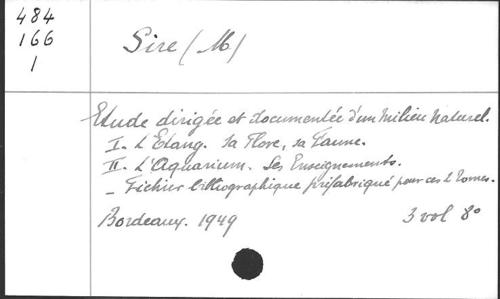 484
166
1
Sire (M)
Etude dirigée et documentée d'un milieu naturel.
I. L'Etang. Sa Flore, sa Faune.
II. L'Aquarium. Ses Enseignements.
- Fichier bibliographique préfabriqué pour ces 2 tomes.
Bordeaux. 1949 3 vol 8°